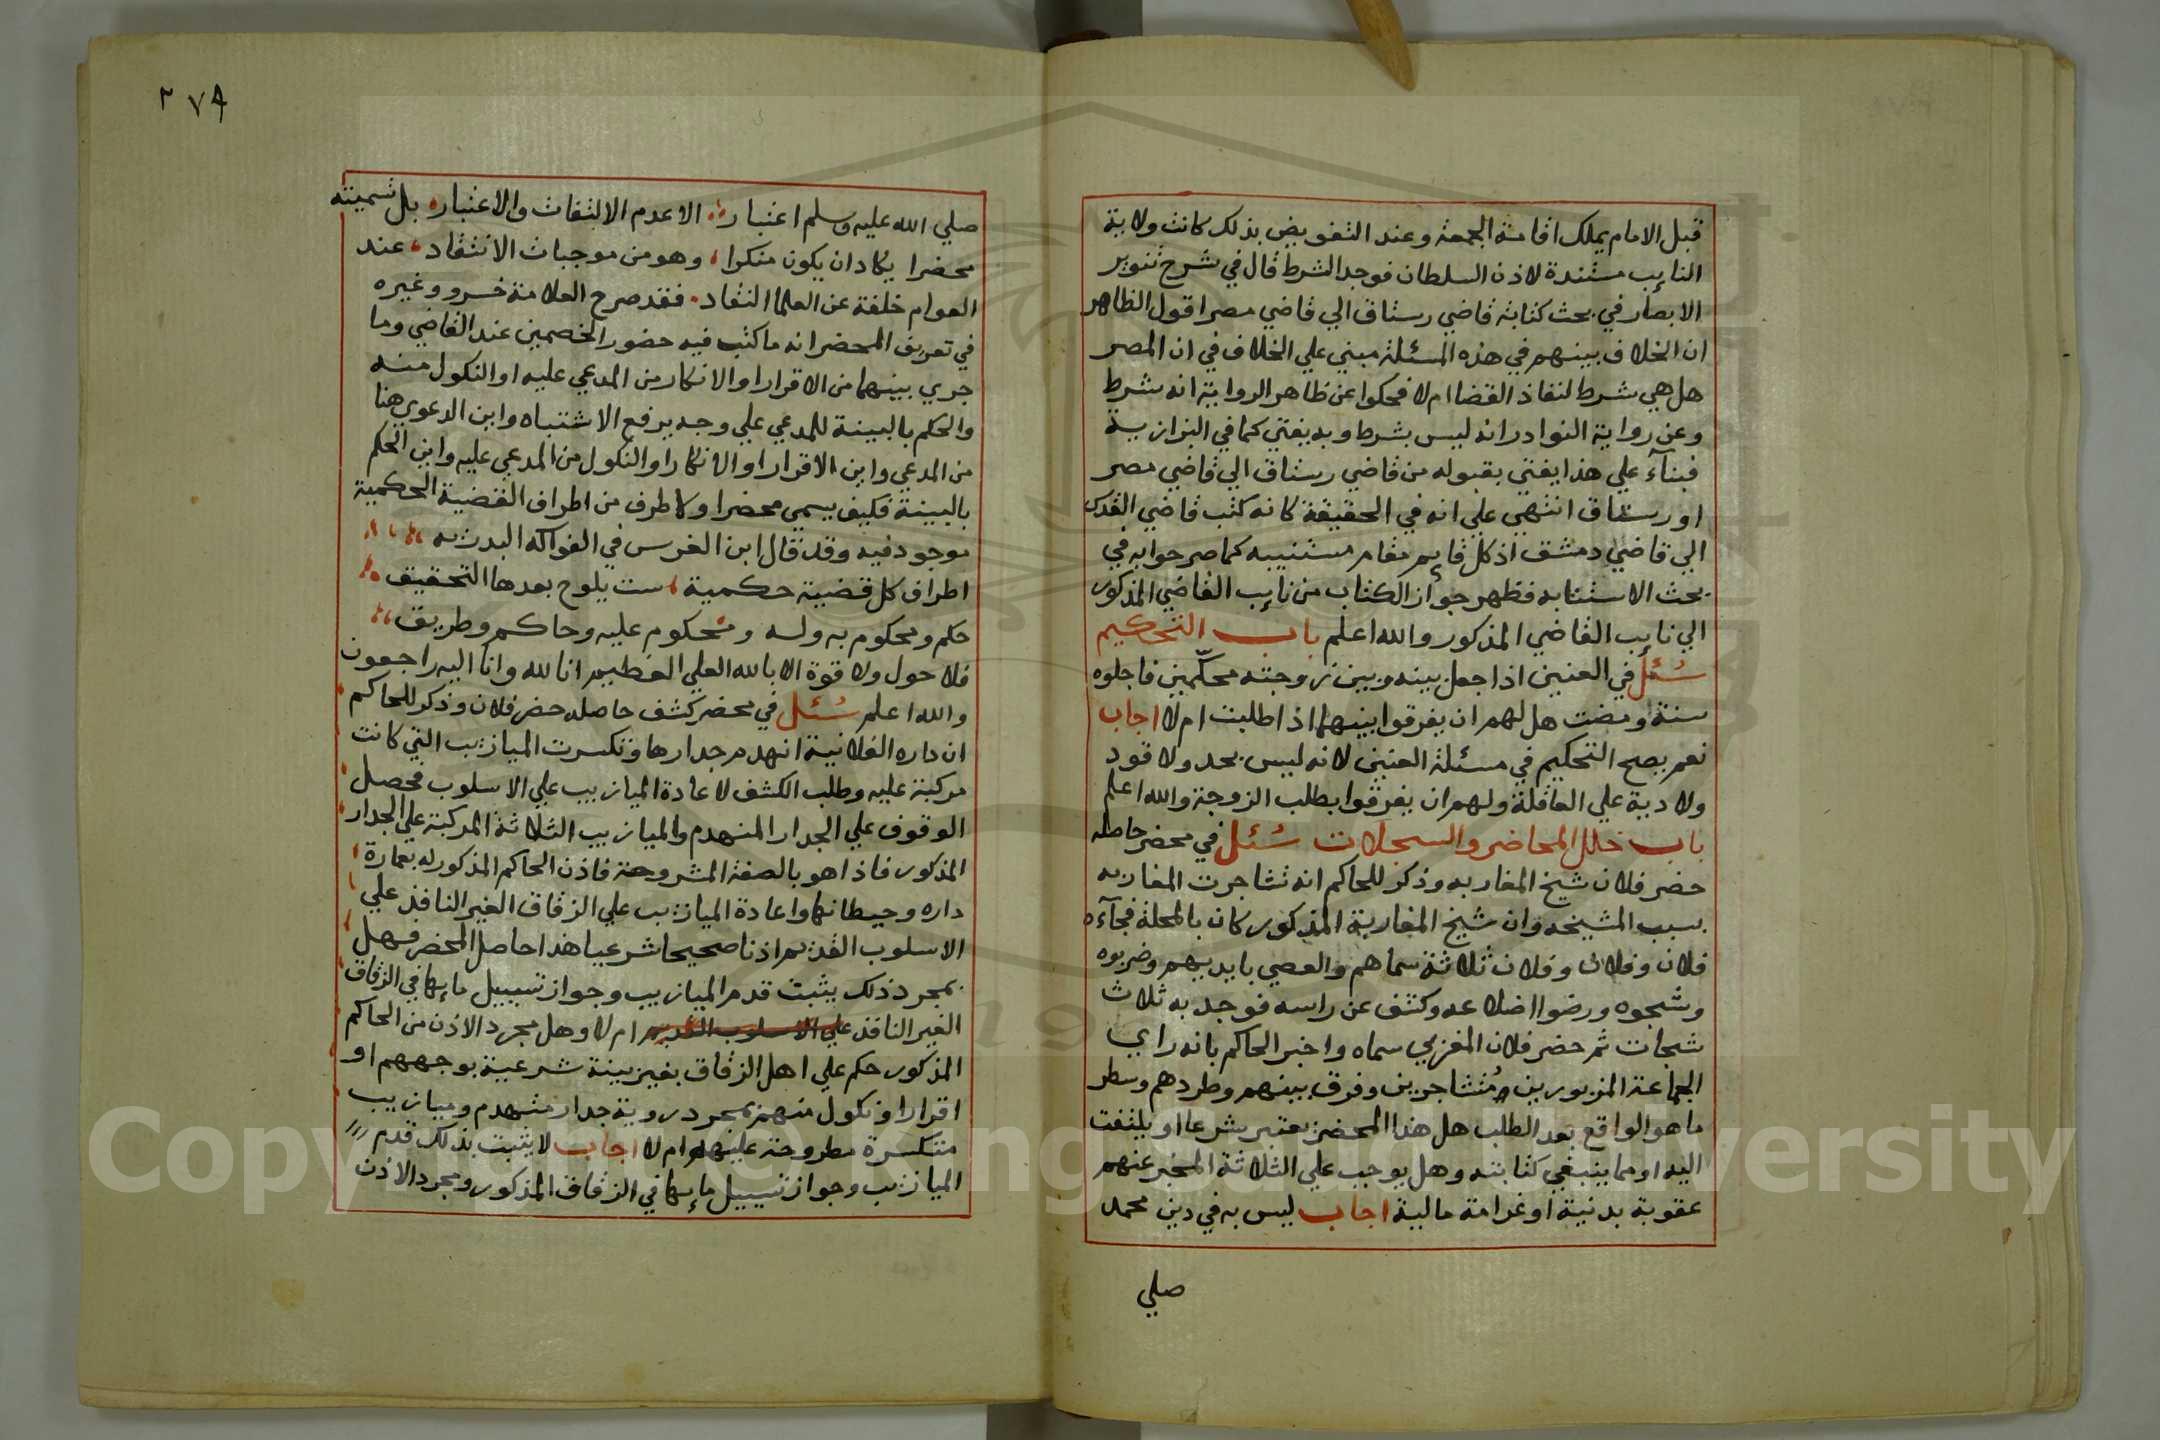 قبل الامام يملك اقامة الجمعة وعند التفويض بذلك كانت ولاية
النايب مستندة لاذن السلطان فوجد الشرط قال في شرح تنوير
الابصار في بحث كتابة قاضي رستاق الي قاضي مصر اقول الظاهر
ان الخلاف بينهم في هذه المسئلة مبني علي الخلاف في ان المصر
هل هي شرط لنفاذ القضا ام لا فحكوا عن ظاهر الرواية انه شرط
وعن رواية النوادر انه ليس بشرط وبه يفتي كما في البزازية
فبنآء علي هذا يفتي بقبوله من قاضي رستاق الي قاضي مصر
او رستاق انتهي علي انه في الحقيقة كانه كتب قاضي القدس
الي قاضي دمشق اذ كل قايم مقام مستنيبه كما صرحوا به في
بحث الاستنابه فظهر جواز الكتاب من نايب القاضي المذكور
الي نايب القاضي المذكور والله اعلم باب التحكيم
سُئل في العنين اذا جعل بينه وبين زوجته محكّمين فاجلوه
سنة ومضت هل لهم ان يفرقوا بينهما اذا طلبت ام لا اجاب
نعم يصح التحكيم في مسئلة العنين لانه ليس بحد ولا قود
ولا دية علي العاقلة ولهم ان يفرقوا بطلب الزوجة والله اعلم
باب خلل المحاضر والسجلات سُئل في محضر حاصله
حضر فلان شيخ المغاربه وذكر للحاكم انه تشاجرت المغاربه
بسبب المشيخه وان شيخ المغاربة المذكور كان بالمحلة فجآءه
فلان وفلان وفلان ثلاثة سماهم والعصي بايديهم وضربوه
وشجوه ورضوا اضلاعه وكشف عن راسه فوجد به ثلاث
شجات ثم حضر فلان المغربي سماه واخبر الحاكم بانه راي
الجماعة المزبورين مُتشاجرين وفرق بينهم وطردهم وسطر
ما هو الواقع بعد الطلب هل هذا المحضر يعتبر شرعا او يلتفت
اليه او مما ينبغي كتابته وهل يوجب علي الثلاثة المخبر عنهم
عقوبة بدنية او غرامة مالية اجاب ليس به في دين محمد
صلي
٣٧٩
صلي الله عليه وسلم اعتبار الا عدم الالتفات والاعتبار بل تسميته
محضرا يكاد ان يكون منكرا وهو من موجبات الانتقاد عند
العوام خلفة عن العلما النقاد فقد صرح العلامة خسرو وغيره
في تعريف المحضر انه ما كتب فيه حضور الخصمين عند القاضي وما
جري بينهما من الاقرار او الانكار من المدعي عليه او النكول منه
والحكم بالبينة للمدعي علي وجه يرفع الاشتباه واين الدعوي هنا
من المدعي واين الاقرار او الانكار او النكول من المدعي عليه واين الحكم
بالبينة فكيف يسمي محضرا ولا طرف من اطراف القضية الحكمية
موجود فيه وقد قال ابن الغرس في الفواكه البدريه
اطراف كل قضية حكمية ست يلوح بعدها التحقيق
حكم ومحكوم به وله ومحكوم عليه وحاكم وطريق
فلا حول ولا قوة الا بالله العلي العظيم انا لله وانا اليه راجعون
والله اعلم سُئل في محضر كشف حاصله حضر فلان وذكر للحاكم
ان داره الفلانية انهدم جدارها وتكسرت الميازيب التي كانت
مركبة عليه وطلب الكشف لاعادة الميازيب علي الاسلوب فحصل
الوقوف علي الجدار المنهدم والميازيب الثلاثة المركبة علي الجدار
المذكور فاذا هو بالصفة المشروحة فاذن الحاكم المذكور له بعمارة
داره وحيطانها واعادة الميازيب علي الزقاق الغير النافذ علي
الاسلوب القديم اذنا صحيحا شرعيا هذا حاصل المحضر فهل
بمجرد ذلك يثبت قدم الميازيب وجواز تسييل مايها في الزقاق
الغير النافذ علي الاسلوب القديم ام لا وهل مجرد الاذن من الحاكم
المذكور حكم علي اهل الزقاق بغير بينة شرعية بوجههم او
اقرار او نكول منهم بمجرد روية جدار منهدم وميازيب
متكسرة مطروحة عليهم ام لا اجاب لا يثبت بذلك قدم
الميازيب وجواز تسييل مايها في الزقاق المذكور ومجرد الاذن
Copyright © King Saud University